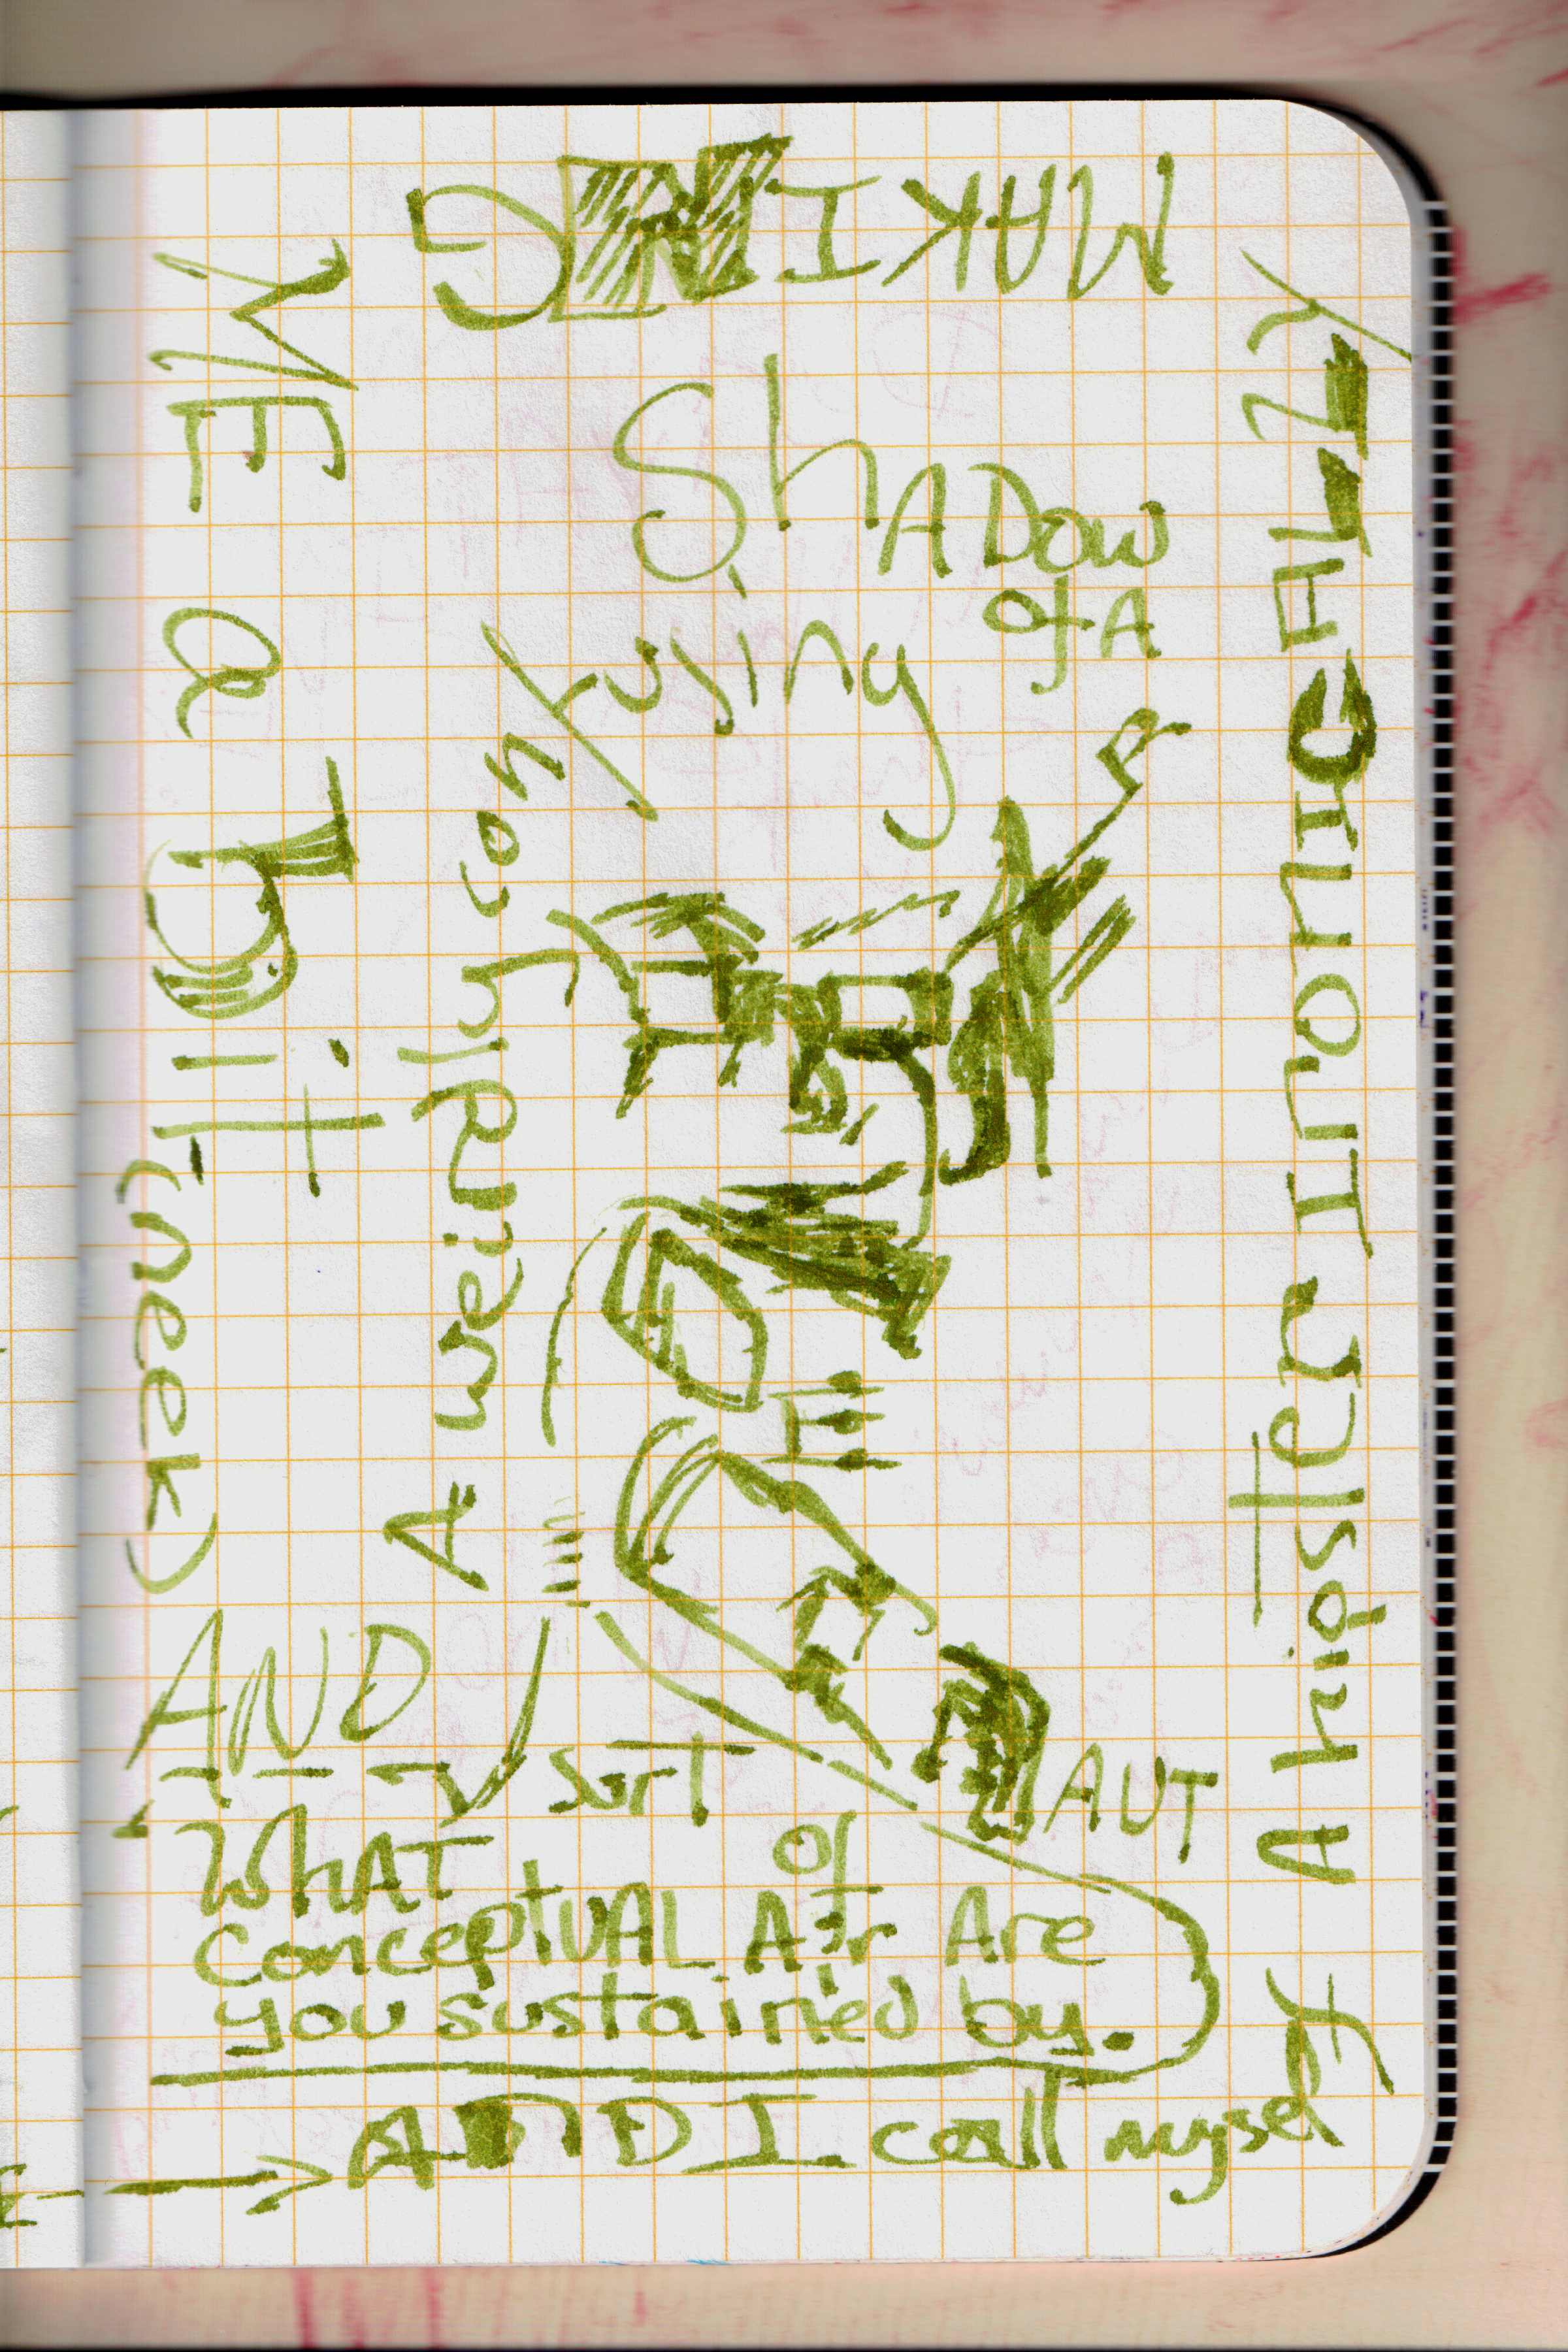 AND I call myself
A hipster IronicALLY
MAKING
ME a bit ill
(neek)
A weirdly confusing
ShADow
of A
AUT
AND
WhAT sorT of
conceptUAL Air Are
you sustained by.